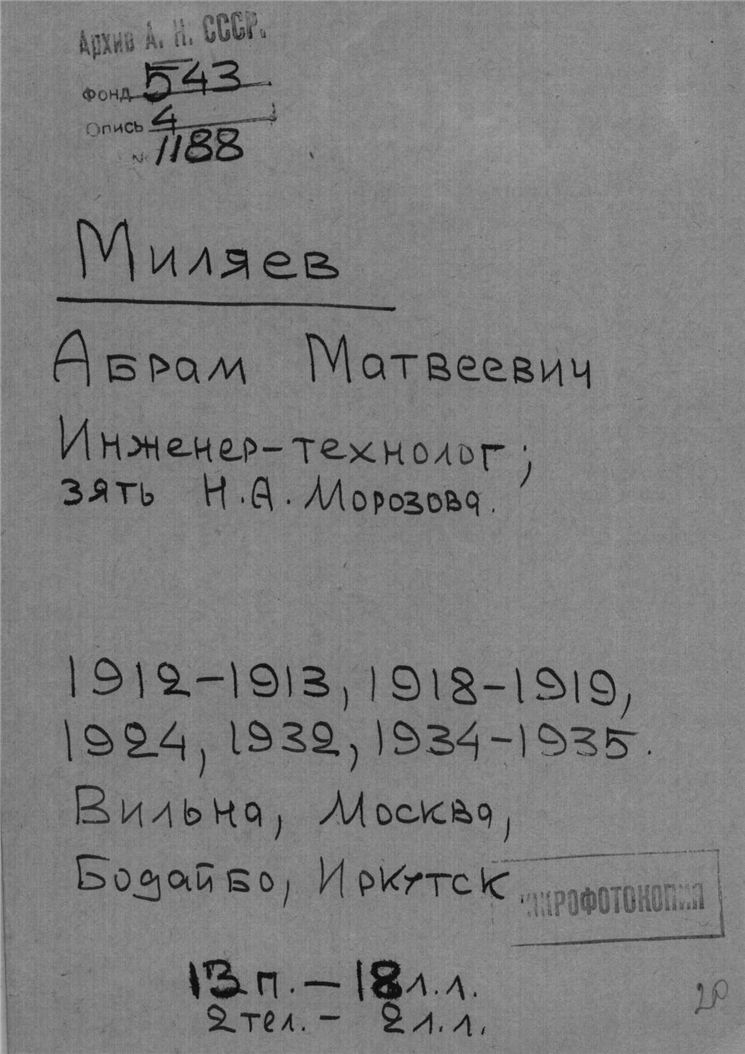 Архив А. Н. СССР.
Фонд 543
Опись 4
№ 1188
Миляев
Абрам Матвеевич
Инженер-технолог;
зять Н.А. Морозова.
1912-1913, 1918-1919,
1924, 1932, 1934-1935.
Вильна, Москва,
Бодайбо, Иркутск
МИКРОФОТОКОПИЯ
13 п. - 18 л.л.
2 тел. - 2 л.л.